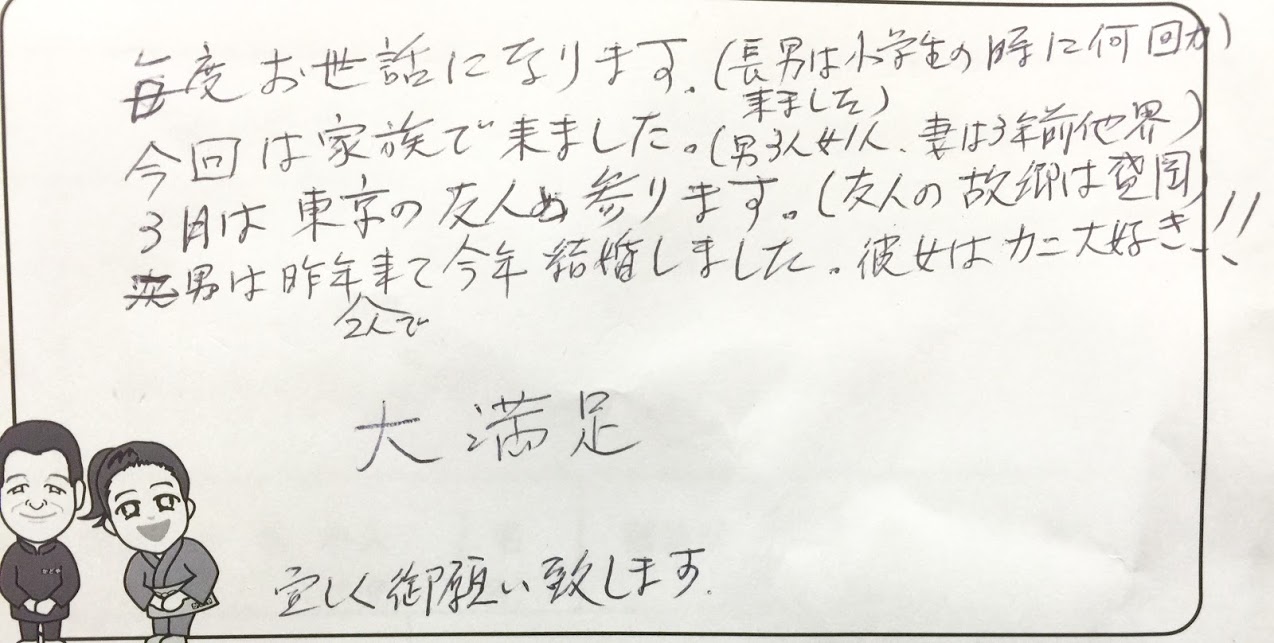 毎度お世話になります。(長男は小学生の時に何回か
来ました)
今回は家族で来ました。(男3人女1人、妻は3年前他界)
3月は東京の友人と参ります。(友人の故郷は豊岡)
次男は昨年来て今年結婚しました。彼女はカニ大好き!!
2人で
大満足
宜しく御願い致します.